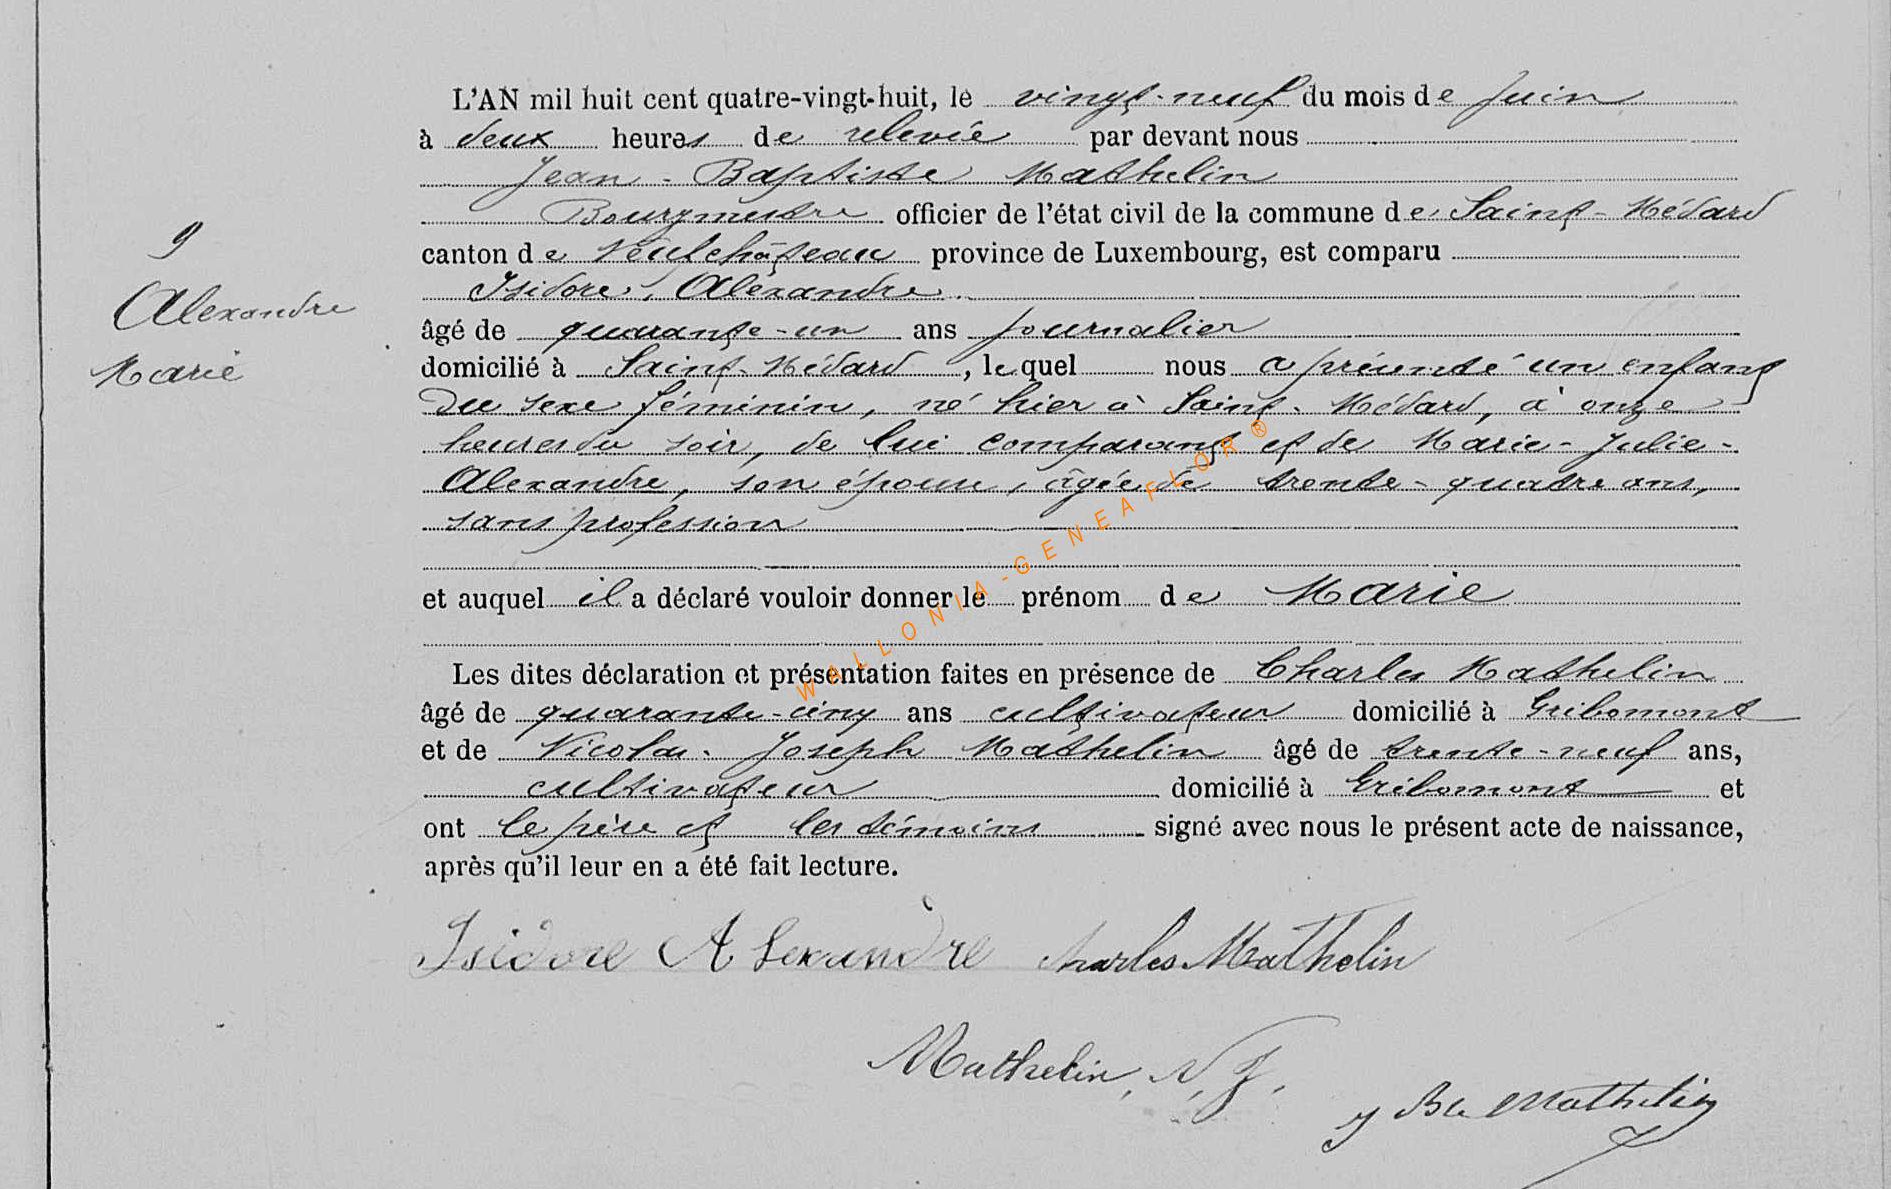 L'AN mil huit cent quatre-vingt-huit, le vingt-neuf du mois de Juin
à deux heures de relevée par devant nous
Jean-Baptiste Mathelin
Bourgmestre officier de l'état civil de la commune de Saint-Médard
canton de Neufchâteau province de Luxembourg, est comparu
Isidore Alexandre
âgé de quarante-un ans journalier
domicilié à Saint-Médard, lequel nous a présenté un enfant
du sexe féminin, né hier à Saint-Médard, à onze
heures du soir, de lui comparant et de Marie-Julie-
Alexandre, son épouse, âgée de trente-quatre ans,
sans profession
et auquel il a déclaré vouloir donner le prénom de Marie
Les dites déclaration et présentation faites en présence de Charles Mathelin
âgé de quarante-cinq ans cultivateur domicilié à Gribomont
et de Nicolas-Joseph Mathelin âgé de trente-neuf ans,
cultivateur domicilié à Gribomont et
ont le père et les témoins signé avec nous le présent acte de naissance,
après qu'il leur en a été fait lecture.
9
Alexandre
Marie
Isidore Alexandre Charles Mathelin
Mathelin, N. J.
J Bte Mathelin
WALLONIA-GENEAFLOR®